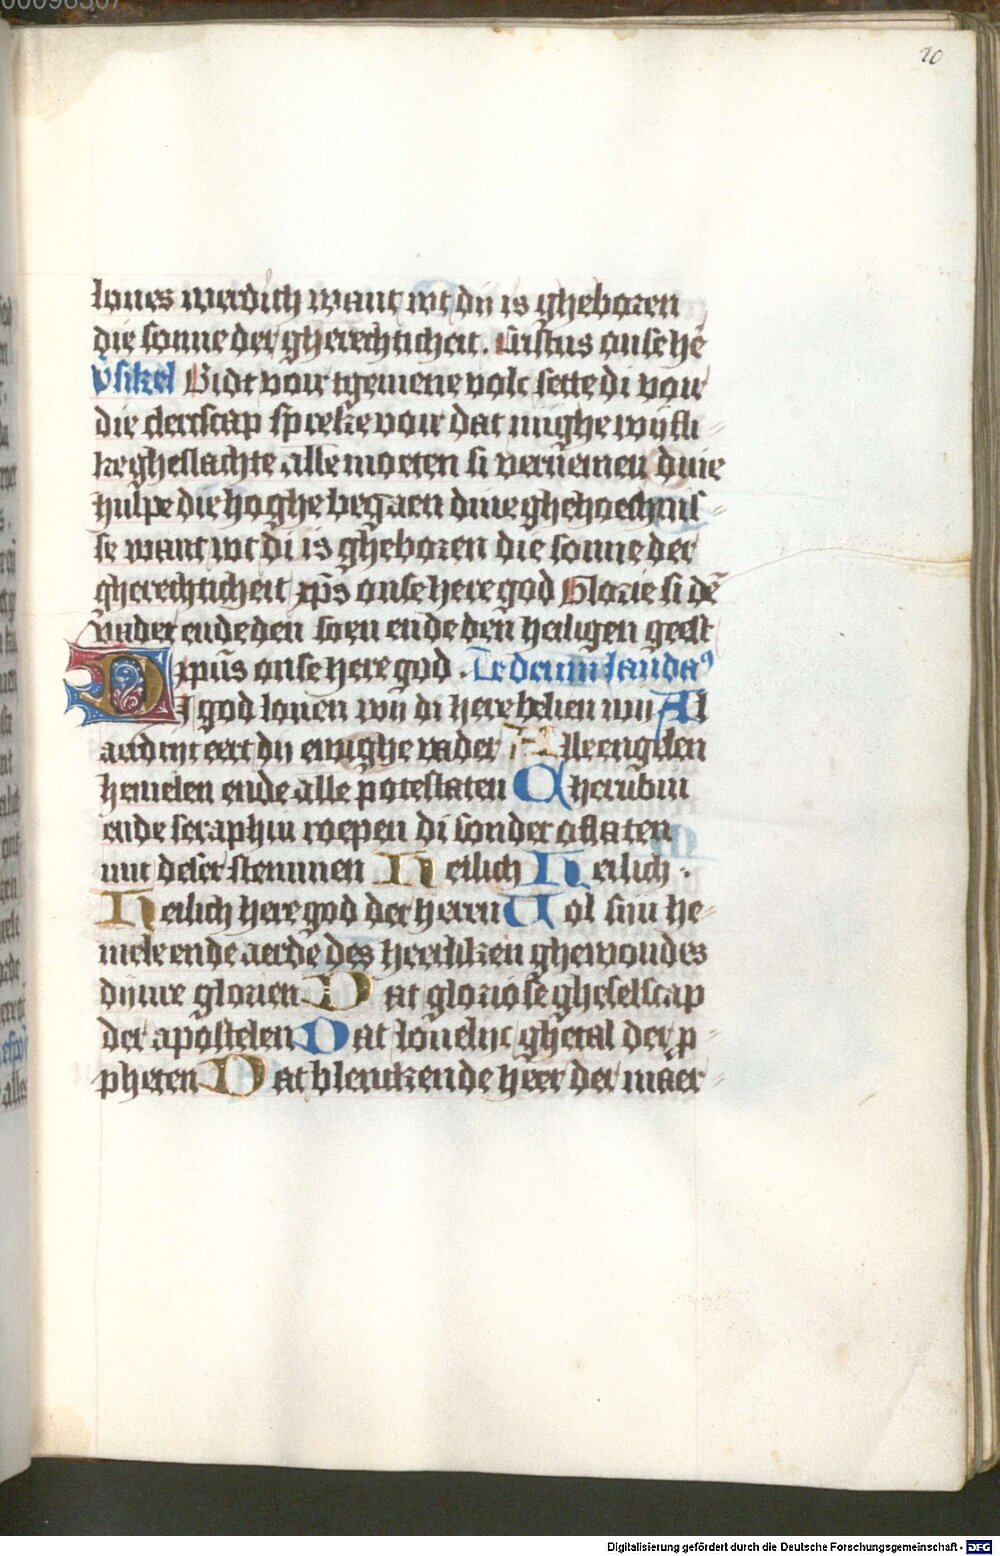 00096307
20
loues werdich want wt dij is gheboren
die sonne der gherechticheit. Cristus onse hē
v̄sikel Bidt voir tgemene volc sette di voir
die clercscap spreke voir dat mighe wijfli
ke gheslachte alle moeten si vernemen dine
hulpe die hoghe begaen dine ghehoechnis
se want wt di is gheboren die sonne der
gherechticheit xp̄s onse here god Glorie si dē
vader ende den soen ende den heiligen geest
xpūs onse here god . Te deum lauda⁹
DI god louen wij di here belien wij Al
aerdrijc eert dij ewighe vader Alle engelen
hemelen ende alle potestaten Cherubin
ende seraphin roepen di sonder aflaten
mit deser stemmen Heilich Heilich .
Heilich here god der herrn Uol sijn he
mele ende aerde des heerliken ghewoudes
dijnre glorien Dat gloriose gheselscap
der apostelen Dat louelijc ghetal der p
pheten Dat blenckende heer der maer
Digitalisierung gefördert durch die Deutsche Forschungsgemeinschaft - DFG